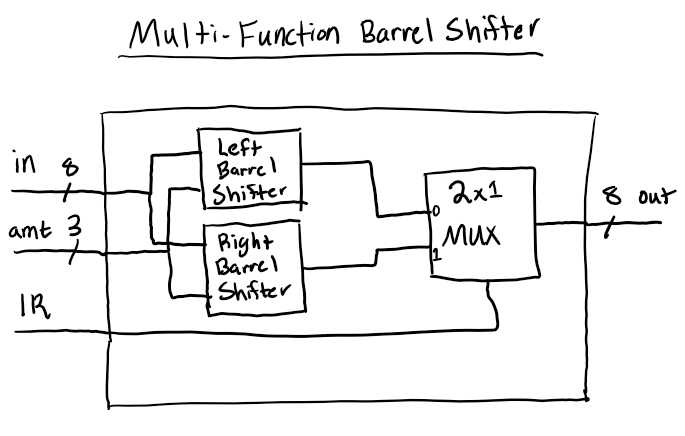 Multi-Function Barrel Shifter
in 8
amt 3
lR
Left
Barrel
Shifter
Right
Barrel
Shifter
2x1
MUX
0
1
8 out